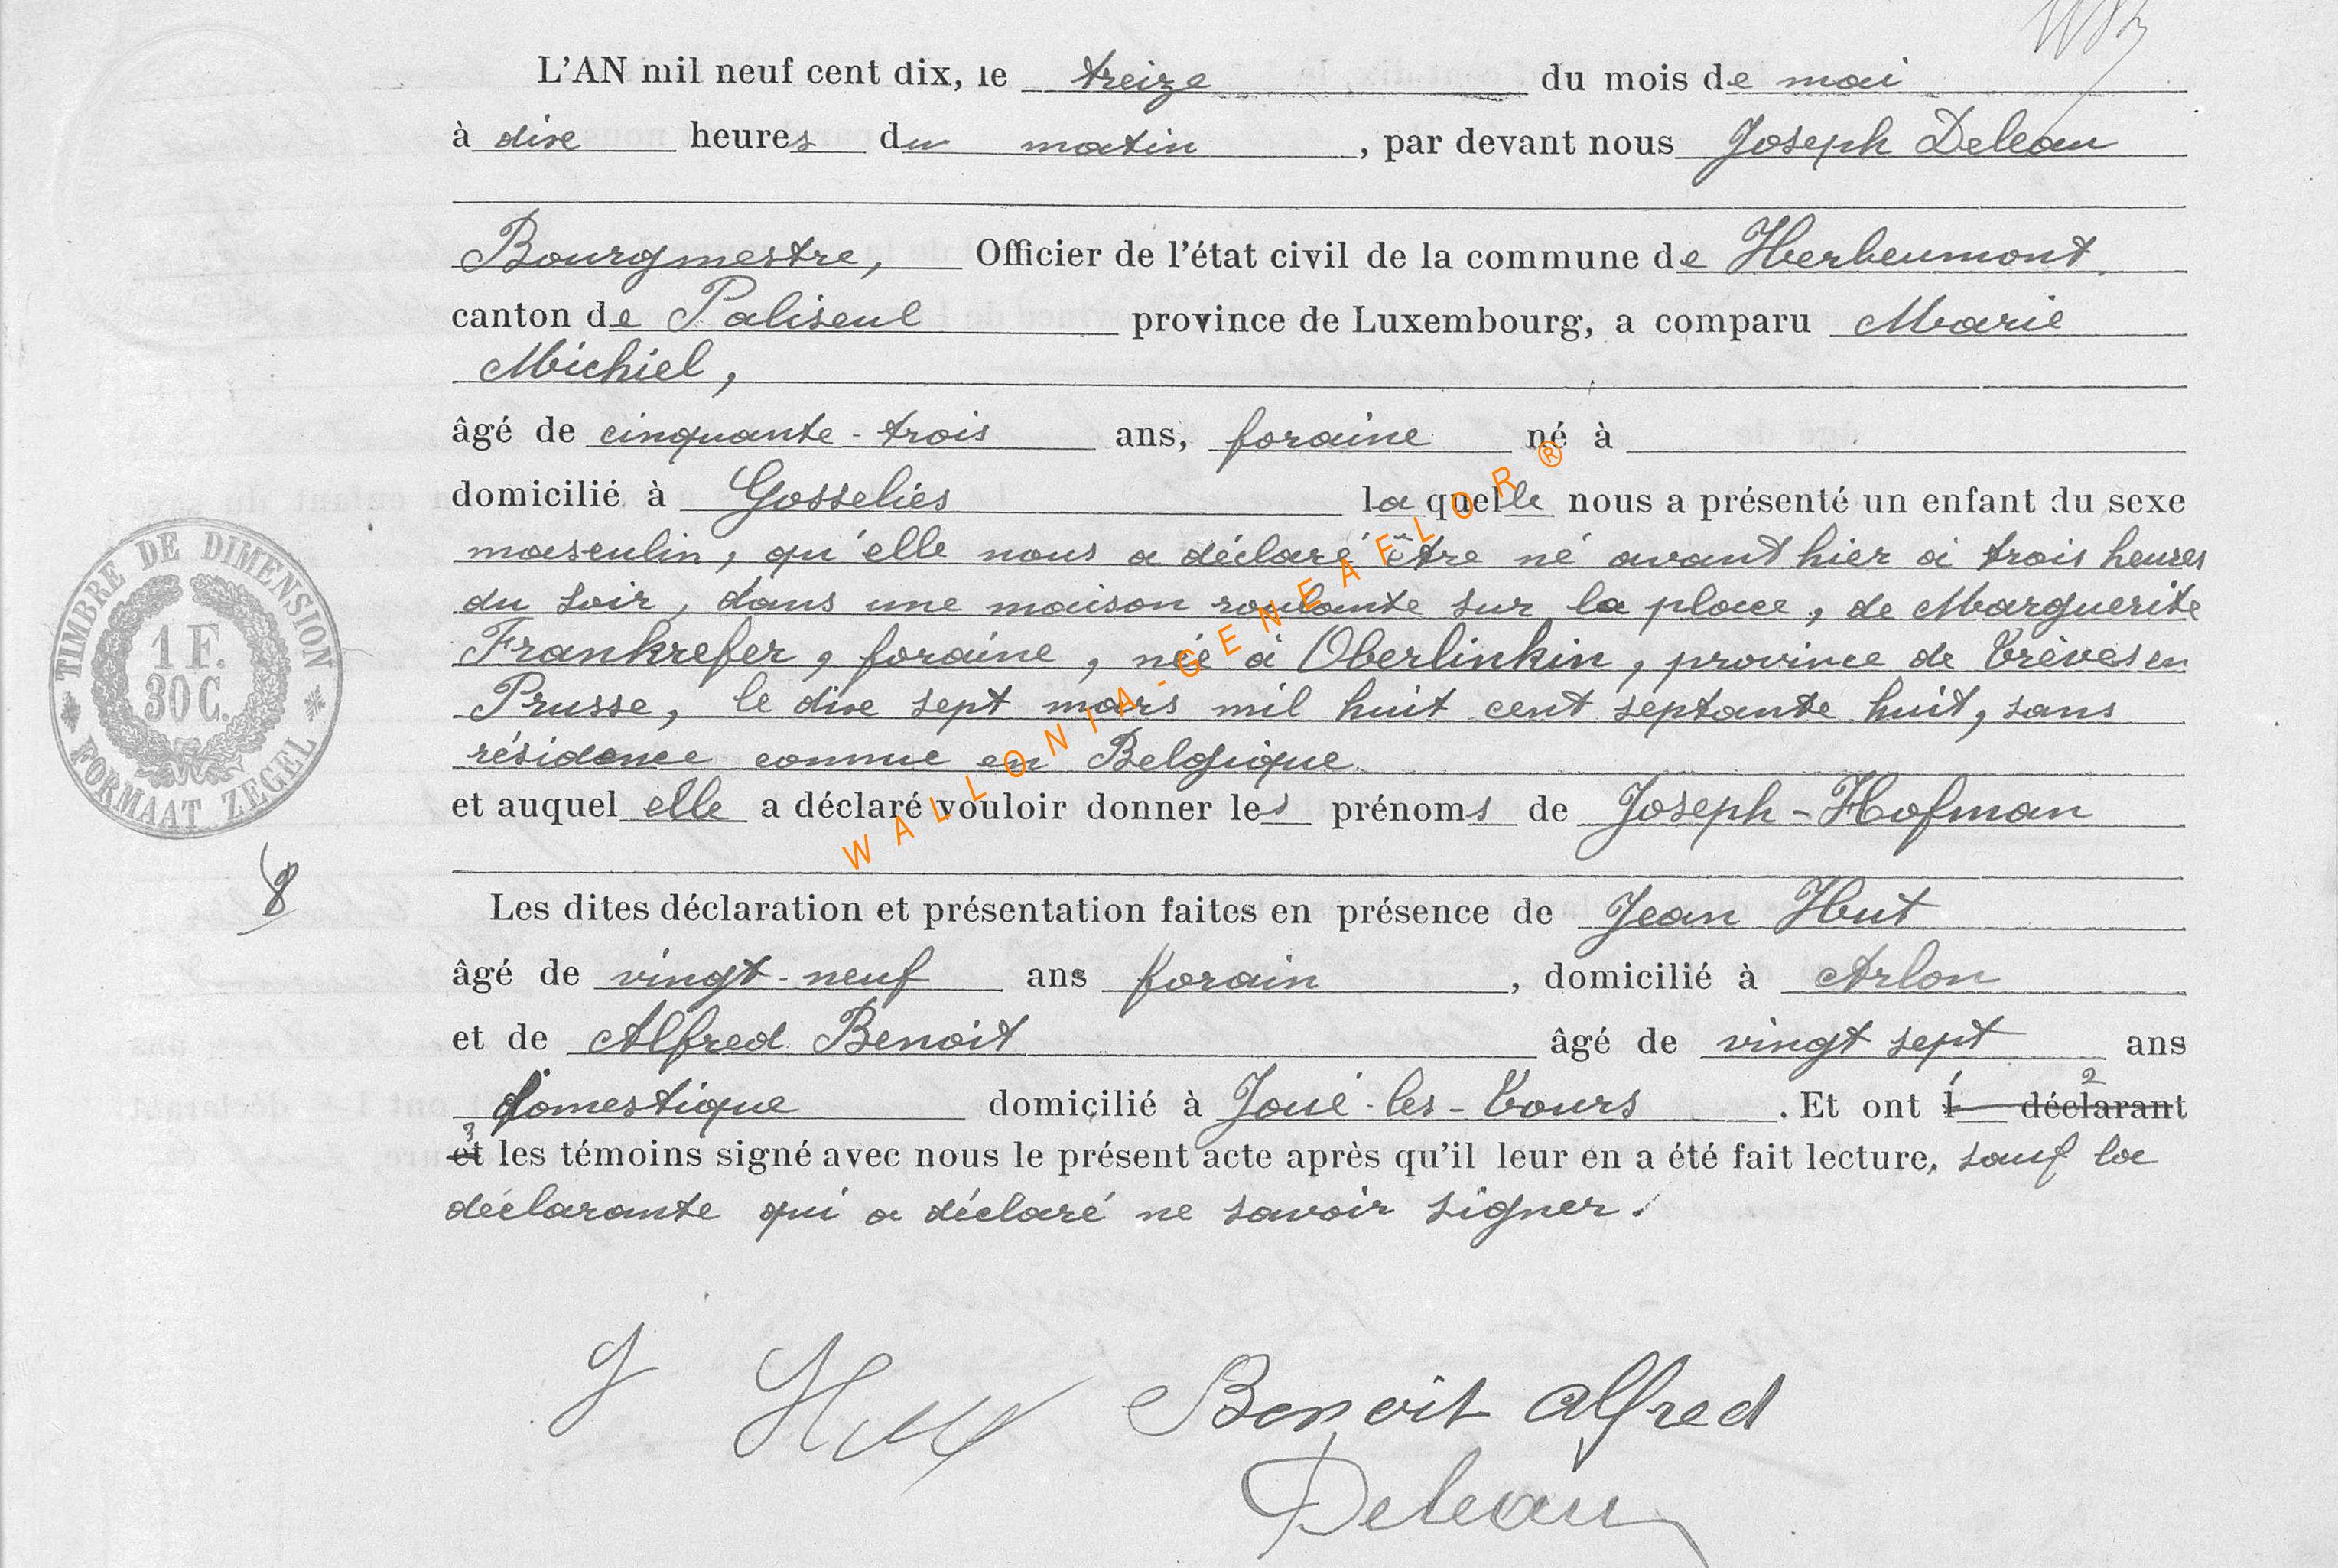 L'AN mil neuf cent dix, le treize du mois de mai
à dixe heures du matin, par devant nous Joseph Deleau
Bourgmestre, Officier de l'état civil de la commune de Herbeumont
canton de Paliseul province de Luxembourg, a comparu Marie
Michiel,
âgé de cinquante-trois ans, foraine né à
domicilié à Gosselies laquelle nous a présenté un enfant du sexe
masculin, qu'elle nous a déclaré être né avant hier à trois heures
du soir, dans une maison roulante sur la place, de Marguerite
Frankrefer, foraine, née à Oberlinkin, province de Trèves en
Prusse, le dixe sept mars mil huit cent septante huit, sans
résidence connue en Belgique
et auquel elle a déclaré vouloir donner les prénoms de Joseph-Hofman
Les dites déclaration et présentation faites en présence de Jean Hut
âgé de vingt-neuf ans forain, domicilié à Arlon
et de Alfred Benoit âgé de vingt sept ans
domestique domicilié à Joué-les-Tours. Et ont l déclarant
et les témoins signé avec nous le présent acte après qu'il leur en a été fait lecture, sauf la
déclarante qui a déclaré ne savoir signer.
TIMBRE DE DIMENSION
1 F.
30 C.
FORMAAT ZEGEL
8
J Hut Benoit Alfred
Deleau
WALLONIA-GENEAELOR ®